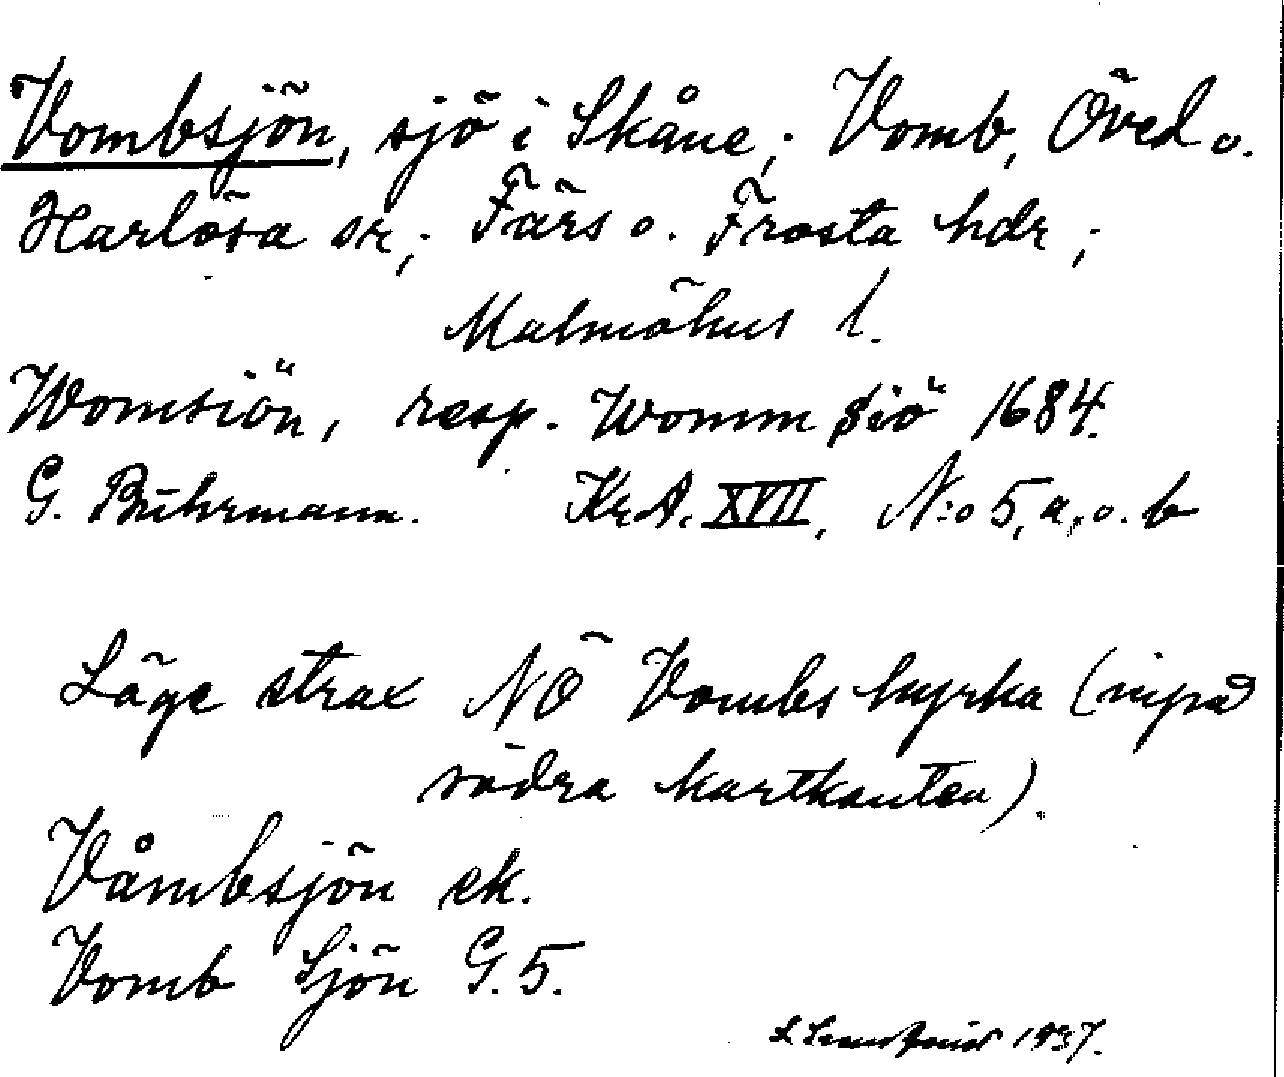 Vombsjön, sjö i Skåne; Vomb, Öved o.
Harlösa sr,; Färs o. Frosta hdr;
Malmöhus l.
Womsiön, resp. Womm siö 1684.
G. Buhrmann. Kr.A. XVII, N:o 5, a, o. b
Läge strax NÖ Vombs kyrka (inpå
södra kartkanten).
Våmbsjön ek.
Vomb Sjön G. 5.
1937.